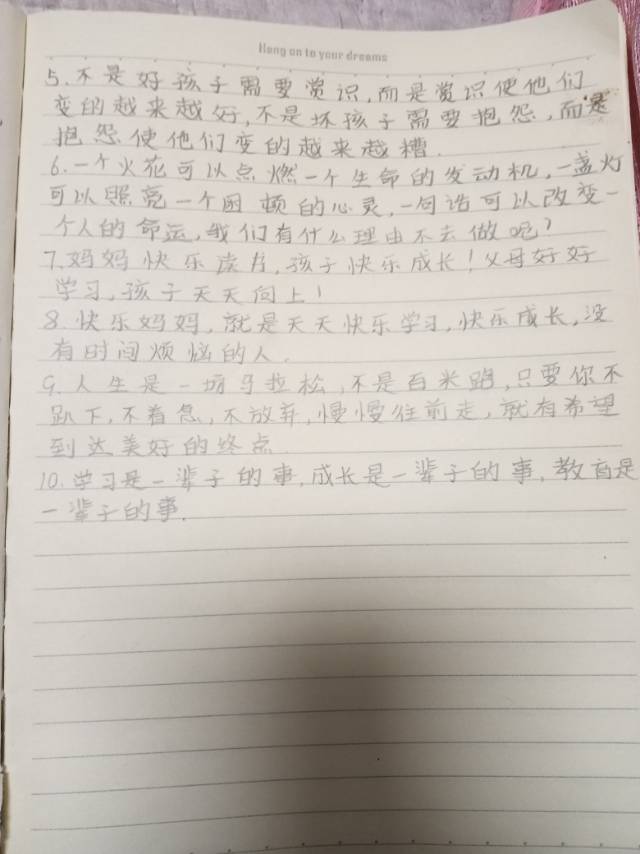 Hang on to your dreams
5.不是好孩子需要赏识,而是赏识使他们
变的越来越好,不是坏孩子需要抱怨,而是
抱怨使他们变的越来越糟.
6.一个火花可以点燃一个生命的发动机,一盏灯
可以照亮一个困顿的心灵,一句话可以改变一
个人的命运,我们有什么理由不去做呢?
7.妈妈快乐读片,孩子快乐成长!父母好好
学习,孩子天天向上!
8.快乐妈妈,就是天天快乐学习,快乐成长,没
有时间烦恼的人.
9.人生是一场马拉松,不是百米跑,只要你不
趴下,不着急,不放弃,慢慢往前走,就有希望
到达美好的终点.
10.学习是一辈子的事,成长是一辈子的事,教育是
一辈子的事.